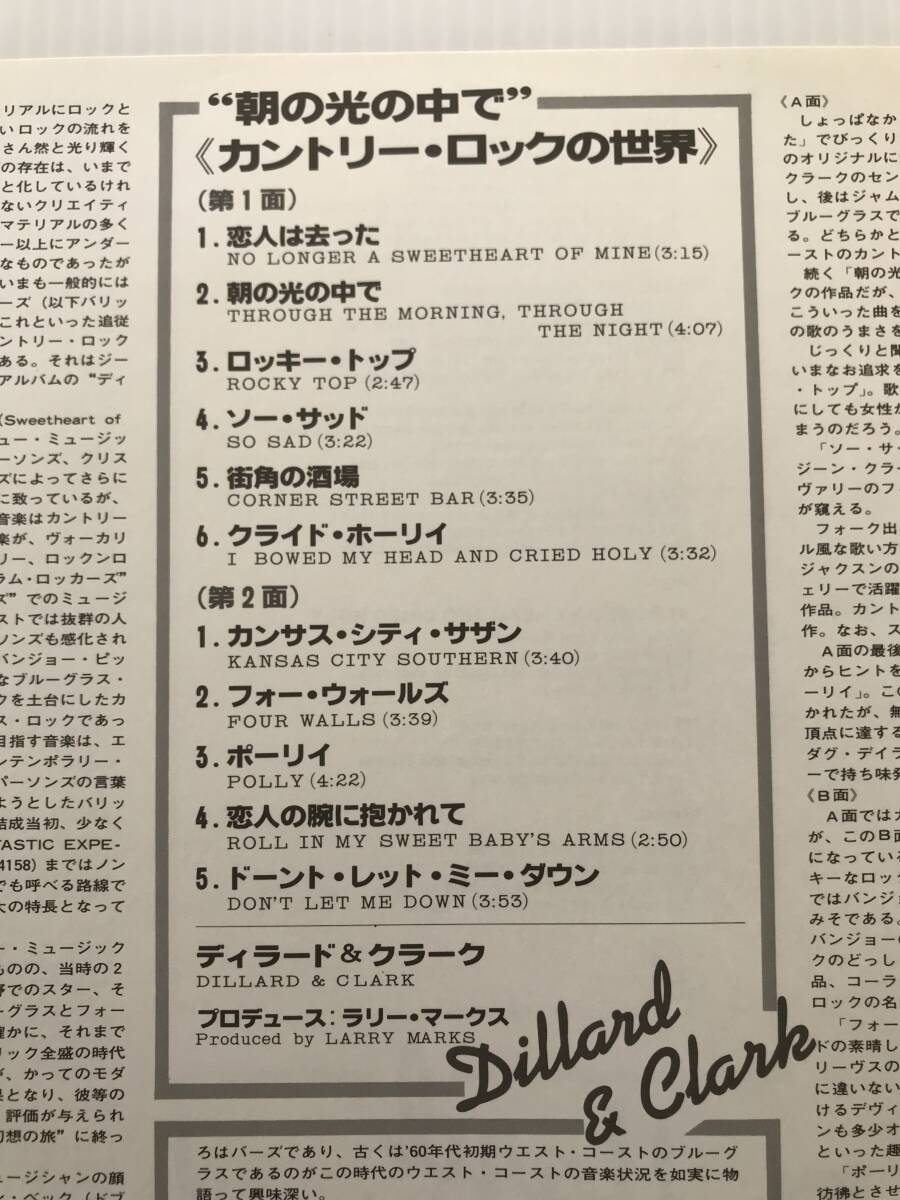 リアルにロックと
いロックの流れを
さん然と光り輝く
の存在は、いまで
と化しているけれ
ないクリエイティ
マテリアルの多く
ー以上にアンダー
なものであったが
いまも一般的には
ーズ（以下バリッ
これといった追従
ントリー・ロック
ある。それはジー
アルバムの“ディ
(Sweetheart of
ュー・ミュージッ
ーソンズ、クリス
ズによってさらに
に致っているが、
音楽はカントリー
楽が、ヴォーカリ
リー、ロックンロ
ラム・ロッカーズ”
ズ”でのミュージ
ストでは抜群の人
ソンズも感化され
バンジョー・ピッ
なブルーグラス・
クを土台にしたカ
ス・ロックであっ
目指す音楽は、エ
ンテンポラリー・
パーソンズの言葉
ようとしたバリッ
結成当初、少なく
TASTIC EXPE-
4158）まではノン
でも呼べる路線で
大の特長となって
ー・ミュージック
ものの、当時の2
野でのスター、そ
ーグラスとフォー
確かに、それまで
リック全盛の時代
が、かってのモダ
果となり、彼等の
評価が与えられ
幻想の旅”に終っ
ュージシャンの顔
ン・ベック（ドブ
“朝の光の中で”
《カントリー・ロックの世界》
（第1面）
1. 恋人は去った
NO LONGER A SWEETHEART OF MINE(3:15)
2. 朝の光の中で
THROUGH THE MORNING, THROUGH
THE NIGHT(4:07)
3. ロッキー・トップ
ROCKY TOP(2:47)
4. ソー・サッド
SO SAD(3:22)
5. 街角の酒場
CORNER STREET BAR(3:35)
6. クライド・ホーリイ
I BOWED MY HEAD AND CRIED HOLY(3:32)
（第2面）
1. カンサス・シティ・サザン
KANSAS CITY SOUTHERN(3:40)
2. フォー・ウォールズ
FOUR WALLS(3:39)
3. ポーリイ
POLLY(4:22)
4. 恋人の腕に抱かれて
ROLL IN MY SWEET BABY'S ARMS(2:50)
5. ドーント・レット・ミー・ダウン
DON'T LET ME DOWN(3:53)
ディラード＆クラーク
DILLARD & CLARK
プロデュース：ラリー・マークス
Produced by LARRY MARKS
Dillard
& Clark
ろはバーズであり、古くは'60年代初期ウエスト・コーストのブルーグ
ラスであるのがこの時代のウエスト・コーストの音楽状況を如実に物
語って興味深い。
《A面》
しょっぱなか
た」でびっくり
のオリジナルに
クラークのセン
し、後はジャム
ブルーグラスで
る。どちらかと
ーストのカント
続く「朝の光
クの作品だが、
こういった曲を
の歌のうまさを
じっくりと聞
いまなお追求を
・トップ」。歌
にしても女性か
まうのだろう。
「ソー・サッ
ジーン・クラー
ヴァリーのフィ
が窺える。
フォーク出
ル風な歌い方
ジャクスンの
ェリーで活躍
作品。カント
作。なお、ス
A面の最後
からヒントを
ーリイ」。この
かれたが、無
頂点に達する
ダグ・デイラ
ーで持ち味発
《B面》
A面ではカ
が、このB面
になっている
キーなロック
ではバンジョ
みそである。
バンジョーの
クのどっし
品、コーラ
ロックの名
「フォー
ドの素晴し
リーヴスの
に違いない
けるデヴィ
ンも多少オ
といった趣
「ポーリ
彷彿とさせ